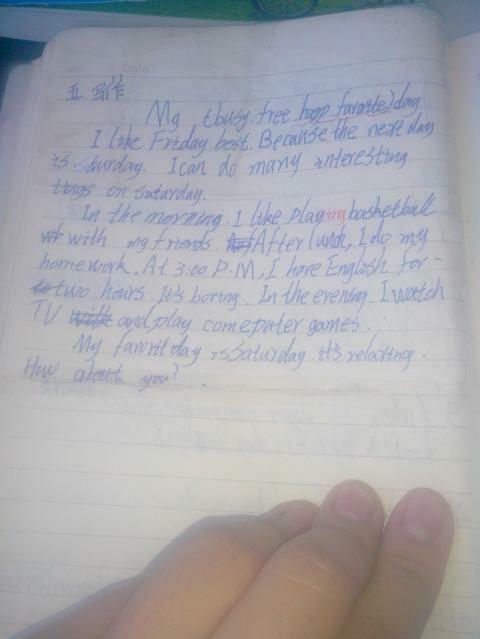 No. Date
五. 写作
My (busy. free. happ favorite) day
I like Friday best. Because the next day
is sturday. I can do many interesting
tings on saturday.
In the morning. I like playing basketball
with my friends. After lunch, I do my
homework. At 3:00 P.M, I have English for-
two hours. It's boring. In the evening. I watch
TV and play comeputer games.
My favorit day is Saturday. it's relating.
How about you?